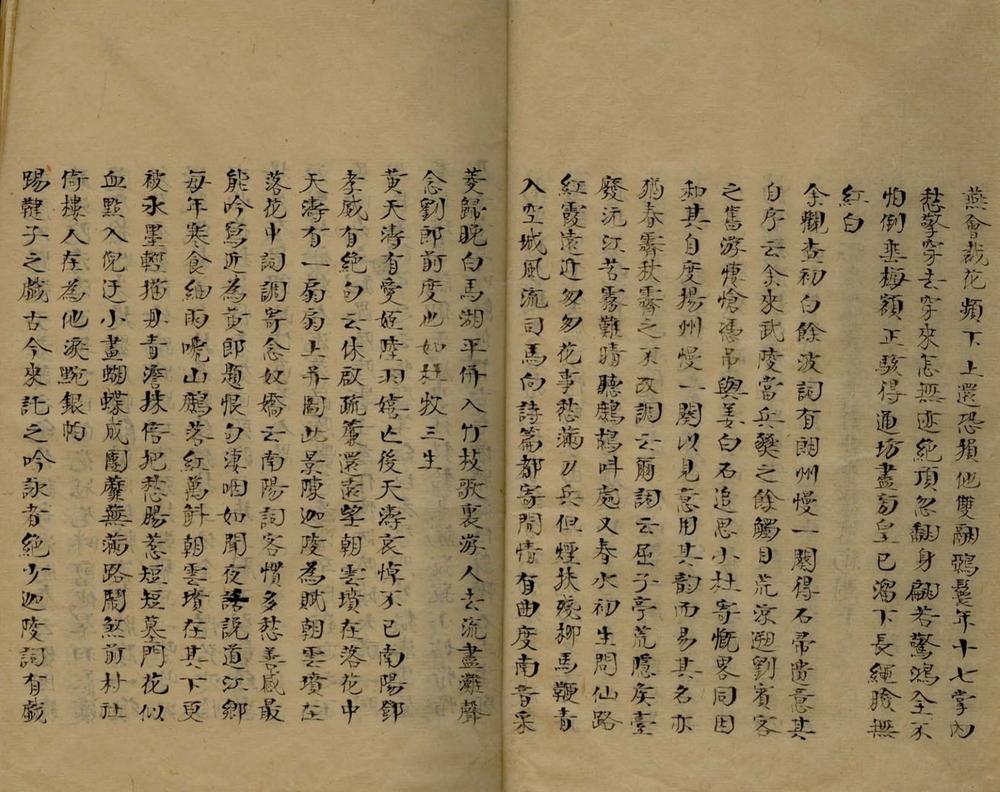 燕會裁花頻下上還恐損他雙翮鴉鬟年十七掌內
愁擎穿去穿來怎無迹絕頂忽翻身翩若驚鴻全不
怕倒垂梅額正駭得通坊盡旁皇已溜下長繩臉無
紅白
余爛查初白餘波詞有朗州慢一闋得石帚遺意其
自序云余來武陵當兵燹之餘觸目荒涼遡劉賓客
之舊游愴愴憑弔與姜白石追思小杜寄慨畧同因
和其自度揚州慢一闋以見意用其韵而易其名亦
猶春霽秋霽之不改調云爾詞云屈子亭荒隱矦臺
廢沅江苦霧難晴聽鷓鴣呌處又春水初生問仙路
紅霞遠近匆匆花事愁滿刀兵但煙抹殘柳馬鞭青
入空城風流司馬向詩篇都寄閒情有曲度南音采
菱歸晚白馬湖平倂入竹枝歌裏游人去流盡灘聲
念劉郎前度也如杜牧三生
黃天濤有愛姬陸羽嬉亡後天濤哀悼不已南陽鄧
孝威有絕句云休啟疏簾還遠望朝雲墳在落花中
天濤有一扇扇上幷圖此景陳迦陵為賦朝雲墳在
落花中詞調寄念奴嬌云南陽詞客慣多愁善感最
能吟寫近為黃郎題恨句淒咽如聞夜話說道江鄉
每年寒食細雨啼山鷓落紅萬斛朝雲墳在其下更
被水墨輕描丹青澹抹倍把愁腸惹短短墓門花似
血點入倪迂小畫蝴蝶成團蘼蕪滿路鬧煞前村社
倚樓人在為他淚黦銀帕
踢鞬子之戲古今來託之吟詠者絕少迦陵詞有戲